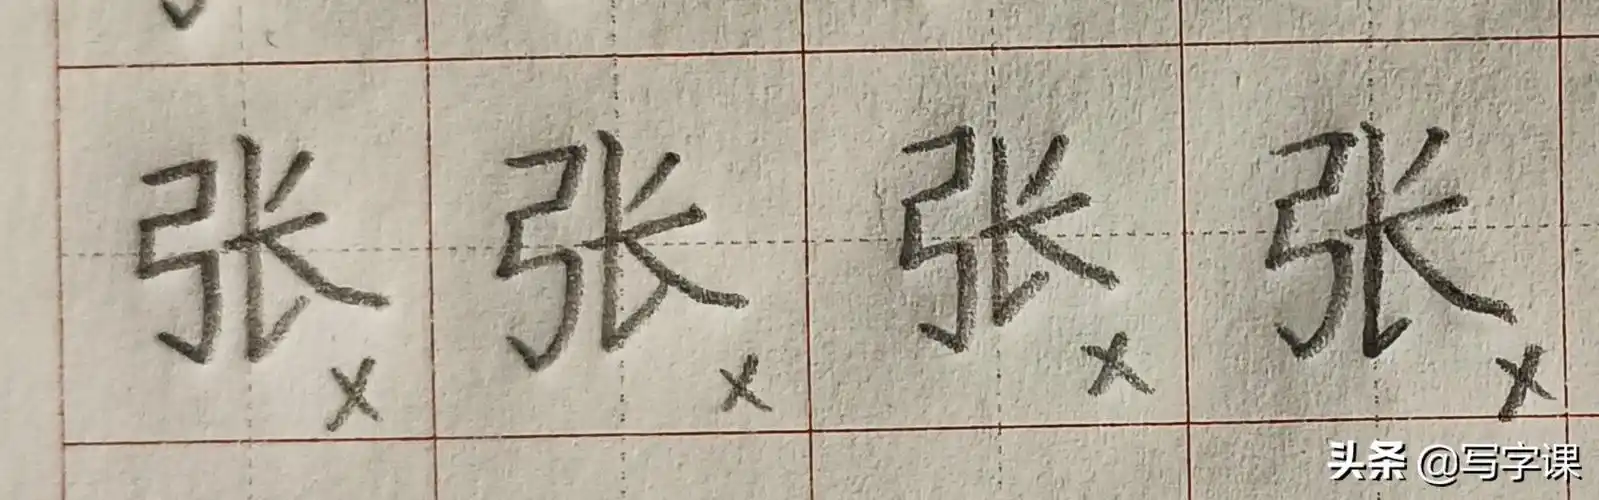 张 张 张 张
× × × ×
头条 @写字课